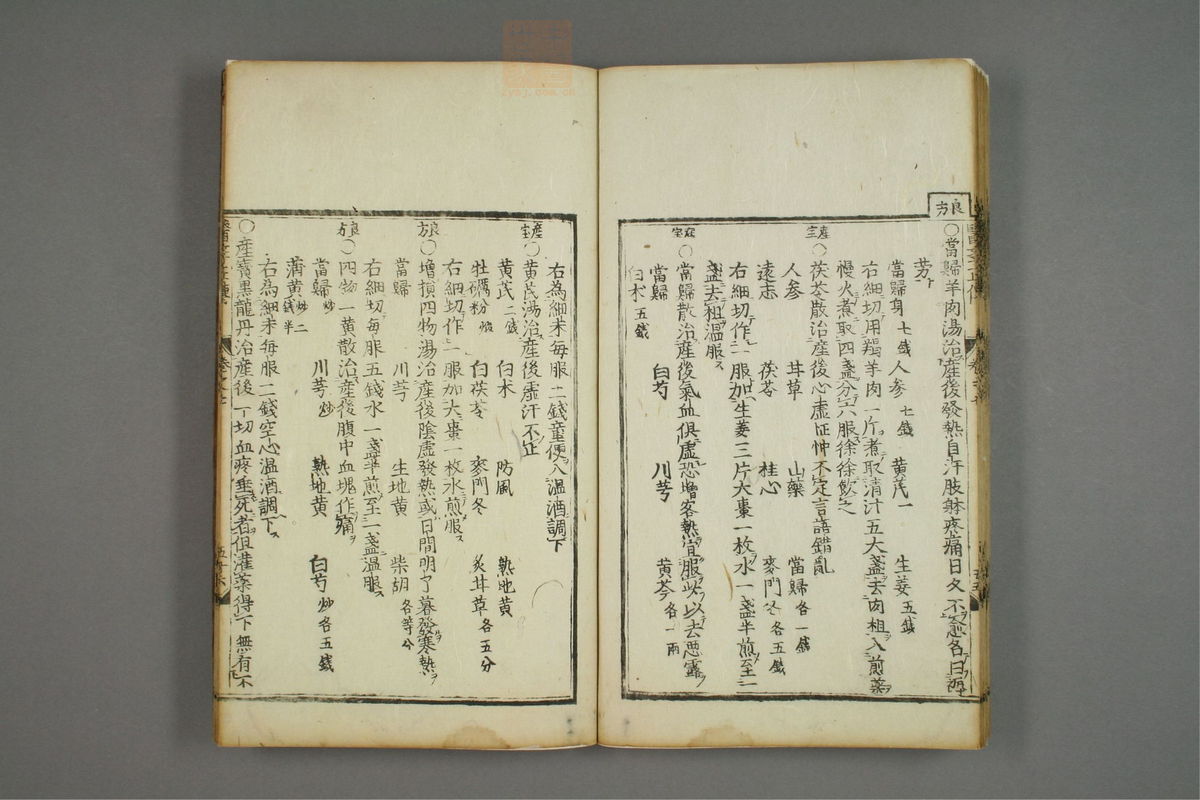 良方
○當歸羊肉湯治產後發熱自汗肢躰疼痛日久不愈名曰蓐
勞
當歸身七錢 人参七錢 黄芪一 生姜五錢
右細切用羯羊肉一斤煮取清汁五大盞去肉粗入煎藥
慢火煮取四盞分六服徐徐飲之
產宝○茯苓散治產後心虚怔忡不定言語錯亂
人参 甘草 山藥 當歸各一錢
遠志 茯苓 桂心 麥門冬各五錢
右細切作二服加生姜三片大棗一枚水一盞半煎至一
盞去粗温服
產宝○當歸散治產後氣血俱虚恐增客熱宜服此以去悪露
當歸 白芍 川芎 黄芩各一兩
白朮五錢
右為細末每服二錢童便入温酒調下
產宝○黄芪湯治產後虚汗不止
黄芪二錢 白朮 防風 熟地黄
牡礪粉煅 白茯苓 麥門冬 炙甘草各五分
右細切作一服加大棗一枚水煎服
良方○增損四物湯治產後陰虚發熱或日間明了暮發寒熱
當歸 川芎 生地黄 柴胡各等分
右細切每服五錢水一盞半煎至一盞温服
良方○四物一黄散治產後腹中血塊作痛
當歸炒 川芎炒 熟地黄 白芍炒各五錢
蒲黄炒二錢半
右為細末每服二錢空心温酒調下
○產寶黒龍丹治產後一切血疼垂死者但灌藥得下無有不